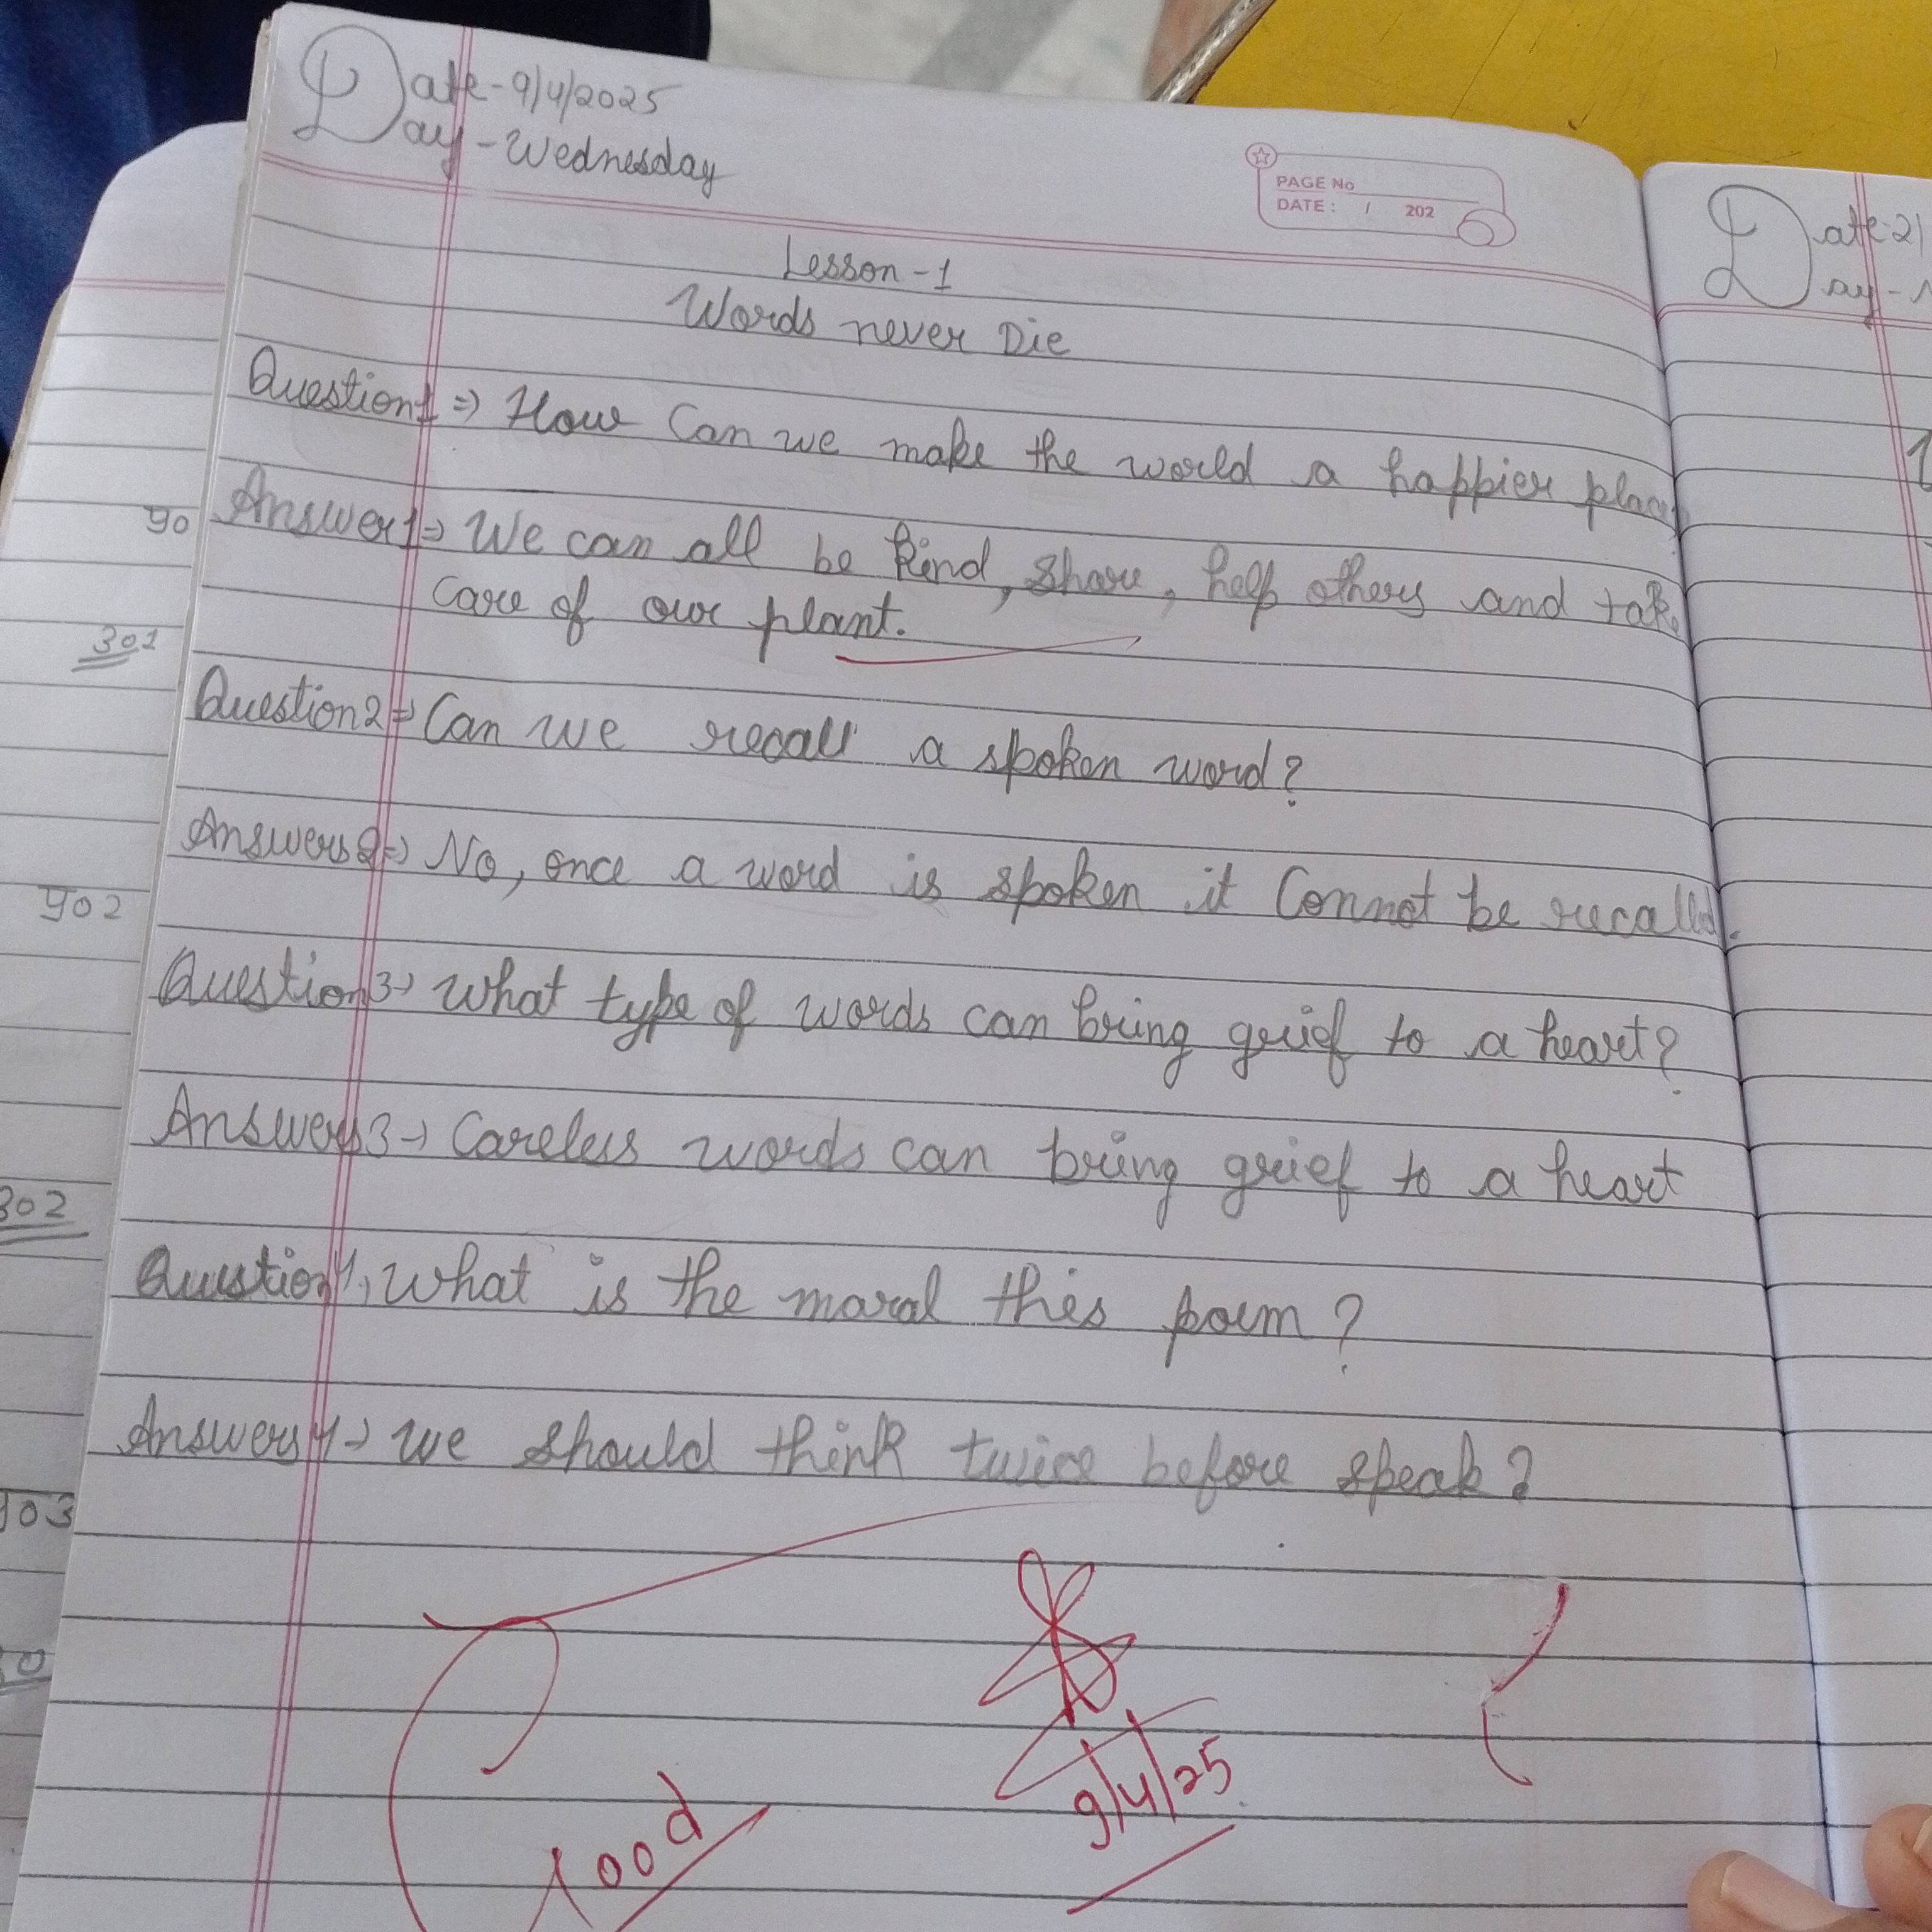 Date-9/4/2025
Day-Wednesday
PAGE No
DATE: / 202
Lesson-1
Words never Die
Question1⇒ How Can we make the world a happier place
Answer1⇒ We can all be kind, share, help others and take
care of our plant.
Question2⇒ Can we recall a spoken word?
Answers2⇒ No, once a word is spoken it Connot be recalled.
Question3→ What type of words can bring grief to a heart?
Answers3→ Careless words can bring grief to a heart
Question4, What is the moral this poem?
Answers4→ we should think twice before speak?
Good
9/4/25
90
301
902
302
903
Date-2/
Day-